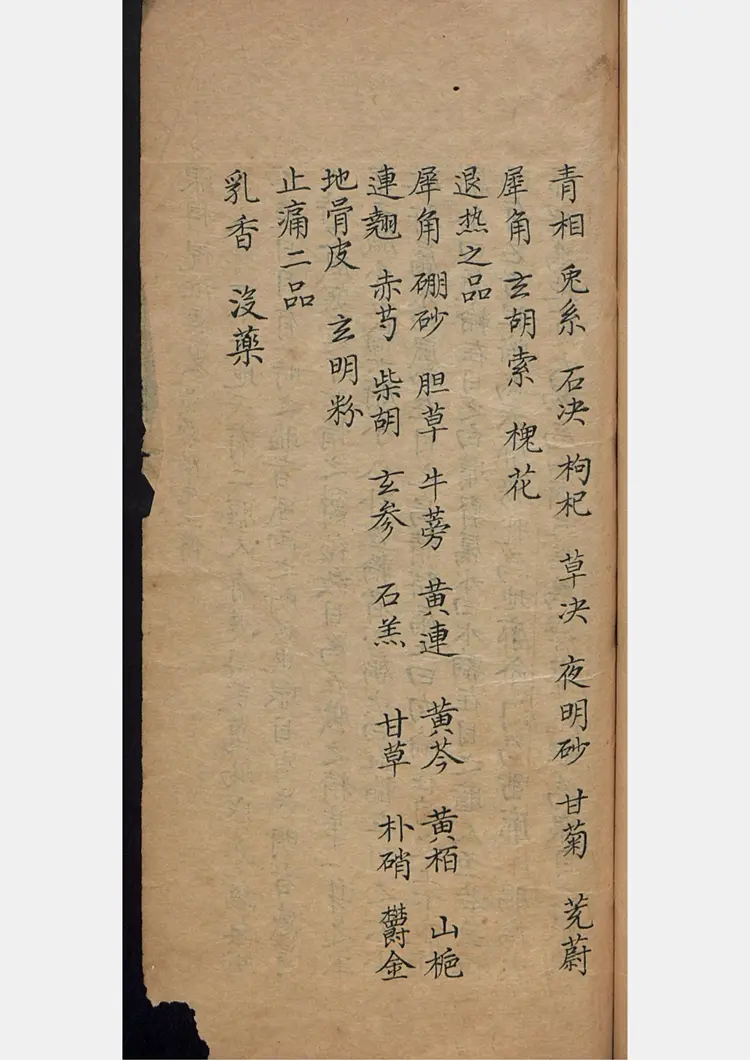 青相 兎系 石决 枸杞 草决 夜明砂 甘菊 茺蔚
犀角 玄胡索 槐花
退热之品
犀角 硼砂 胆草 牛蒡 黄連 黄芩 黄栢 山栀
連翹 赤芍 柴胡 玄参 石羔 甘草 朴硝 欝金
地骨皮 玄明粉
止痛二品
乳香 沒藥